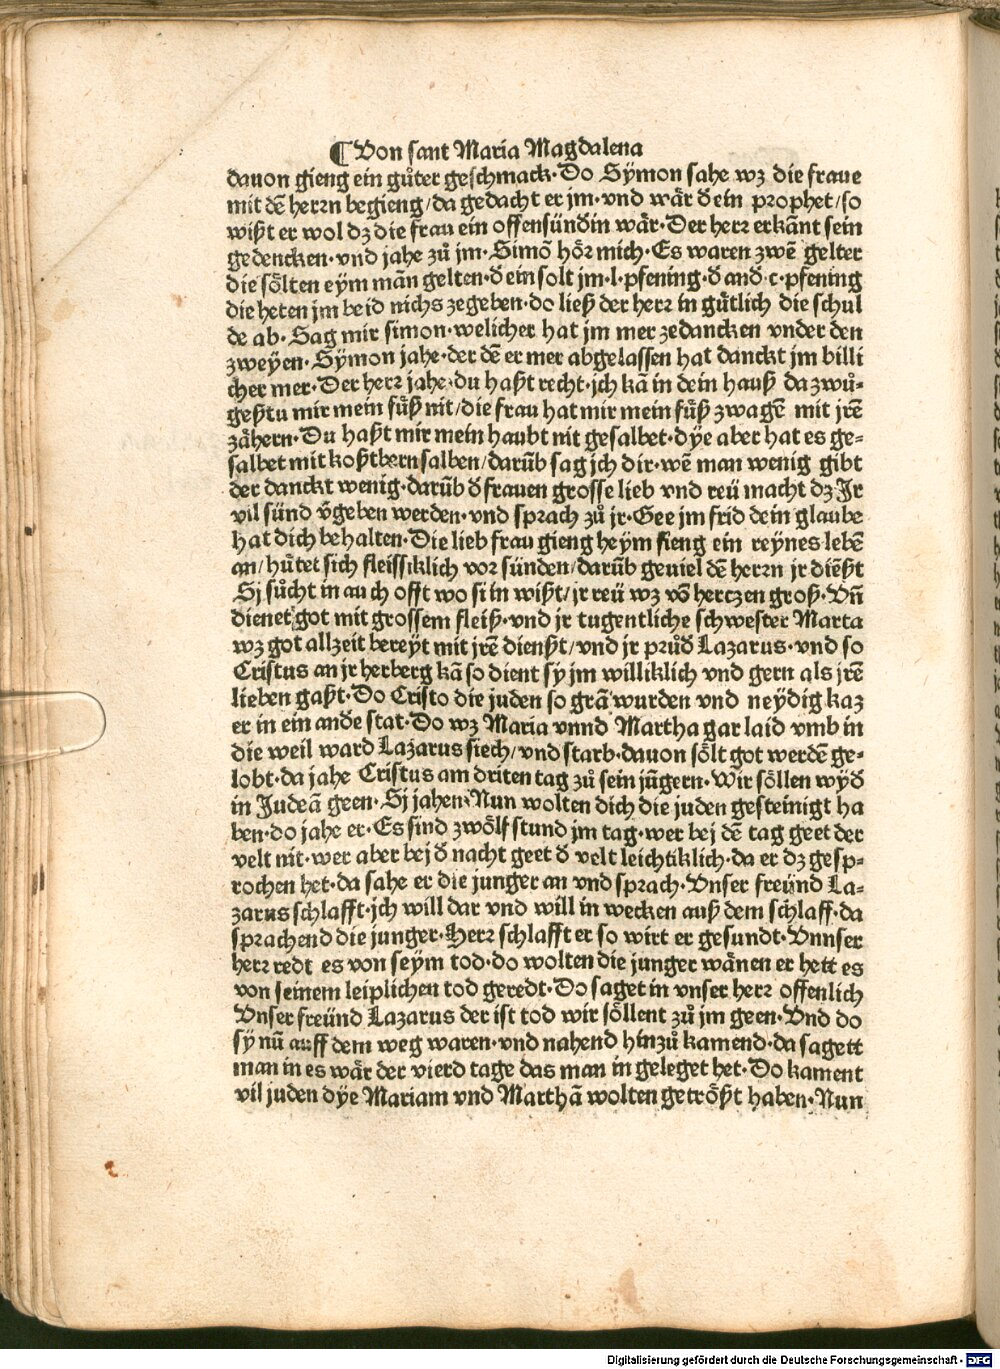 ¶ Von sant Maria Magdalena
dauon gieng ein gůter geschmack·Do Sÿmon sahe wz die fraue
mit dē herrn begieng/da gedacht er jm·vnd wär d̕ ein prophet/so
wißt er wol dz die frau ein offensündin wär·Der herr erkānt sein
gedencken·vnd jahe zů jm·Simō hör mich·Es waren zwē gelter
die sölten eym mān gelten·d̕ ein solt jm·l·pfening·d̕ and̕·c·pfening
die heten jm beid nichs zegeben·do ließ der herr in gütlich die schul
de ab·Sag mir simon·welicher hat jm mer zedancken vnder den
zweyen·Sÿmon jahe·der dē er mer abgelassen hat danckt jm billi
cher mer·Der herr jahe·du haßt recht·jch kā in dein hauß da zwů⸗
geßtu mir mein füß nit/die frau hat mir mein füß zwagē mit jrē
zähern·Du haßt mir mein haubt nit gesalbet·dÿe aber hat es ge⸗
salbet mit koßtbern salben/darūb sag jch dir·wē man wenig gibt
der danckt wenig·darūb d̕ frauen grosse lieb vnd reü macht dz Jr
vil sünd v̄geben werden·vnd sprach zů jr·Gee jm frid dein glaube
hat dich behalten·Die lieb frau gieng heym fieng ein reynes lebē
an/hütet sich fleissiklich vor sünden/darūb geuiel dē herrn jr diēßt
Sj sůcht in auch offt wo si in wißt/jr reü wz vō hertzen groß·Vn̄
dienet got mit grossem fleiß·vnd jr tugentliche schwester Marta
wz got allzeit bereyt mit jrē dienßt/vnd jr průd̕ Lazarus·vnd so
Cristus an jr herberg kā so dient sy jm williklich vnd gern als jrē
lieben gaßt·Do Cristo die juden so grā wurden vnd neydig kaz
er in ein ande stat·Do wz Maria vnnd Martha gar laid vmb in
die weil ward Lazarus siech/vnd starb·dauon sölt got werdē ge⸗
lobt·da jahe Cristus am driten tag zů sein jūgern·Wir söllen wyd̕
in Judeā geen·Sj jahen·Nun wolten dich die juden gesteinigt ha
ben·do jahe er·Es sind zwölf stund jm tag·wer bej dē tag geet der
velt nit·wer aber bej d̕ nacht geet d̕ velt leichtiklich·da er dz gesp⸗
rochen het·da sahe er die junger an vnd sprach·Vnser freünd La⸗
zarus schlafft·jch will dar vnd will in wecken auß dem schlaff·da
sprachend die junger·Herr schlafft er so wirt er gesundt·Vnnser
herr redt es von seym tod·do wolten die junger wänen er hett es
von seinem leiplichen tod geredt·Do saget in vnser herr offenlich
Vnser freünd Lazarus der ist tod wir söllent zů jm geen·Vnd do
sy nū auff dem weg waren·vnd nahend hinzů kamend·da sagett
man in es wär der vierd tage das man in geleget het·Do kament
vil juden dÿe Mariam vnd Marthā wolten getrößt haben·Nun
Digitalisierung gefördert durch die Deutsche Forschungsgemeinschaft - DFG